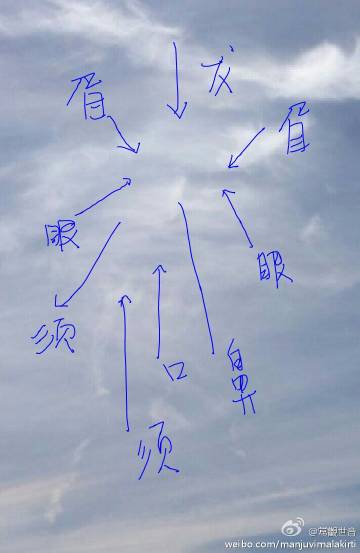 发
眉
眉
眼
眼
须
口
鼻
须
@常觀世音
weibo.com/manjuvimalakirti